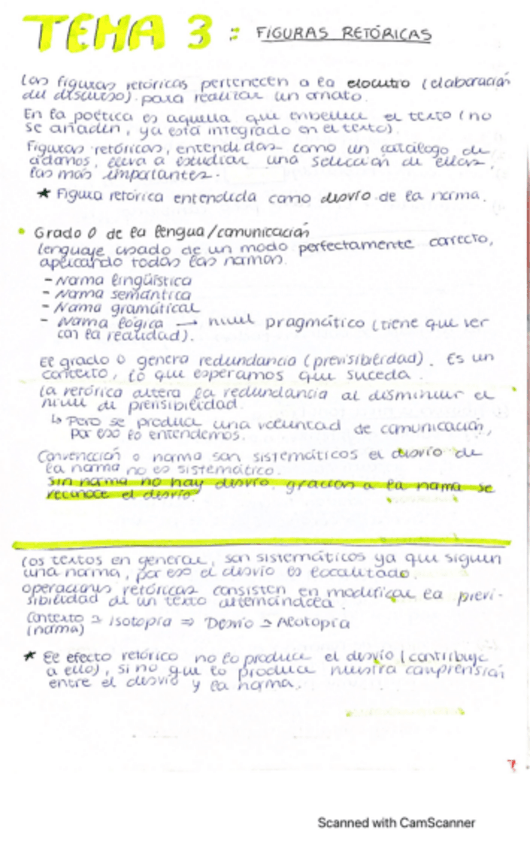 TEMA 3 : FIGURAS RETÓRICAS
Las figuras retóricas pertenecen a la elocutio (elaboración
del discurso) para realizar un ornato.
En la poética es aquella que embellece el texto (no
se añaden, ya está integrado en el texto).
Figuras retóricas, entendidas como un catálogo de
adornos, lleva a estudiar una selección de ellas,
las más importantes.
* Figura retórica entendida como desvío de la norma.
• Grado 0 de la lengua/comunicación
lenguaje usado de un modo perfectamente correcto,
aplicando todas las normas.
- Norma lingüística
- Norma semántica
- Norma gramatical
- Norma lógica → nivel pragmático (tiene que ver
con la realidad).
El grado 0 genera redundancia (previsibilidad). Es un
contexto, lo que esperamos que suceda.
La retórica altera la redundancia al disminuir el
nivel de previsibilidad.
↳ Pero se produce una voluntad de comunicación,
por eso lo entendemos.
Convención o norma son sistemáticos el desvío de
la norma no es sistemático.
Sin norma no hay desvío, gracias a la norma se
reconoce el desvío.
Los textos en general, son sistemáticos ya que siguen
una norma, por eso el desvío es localizado.
Operaciones retóricas consisten en modificar la previ-
sibilidad de un texto
Contexto ⇒ Isotopía ⇒ Desvío ⇒ Alotopía
(norma)
* El efecto retórico no lo produce el desvío (contribuye
a ello), si no que lo produce nuestra comprensión
entre el desvío y la norma.
Scanned with CamScanner